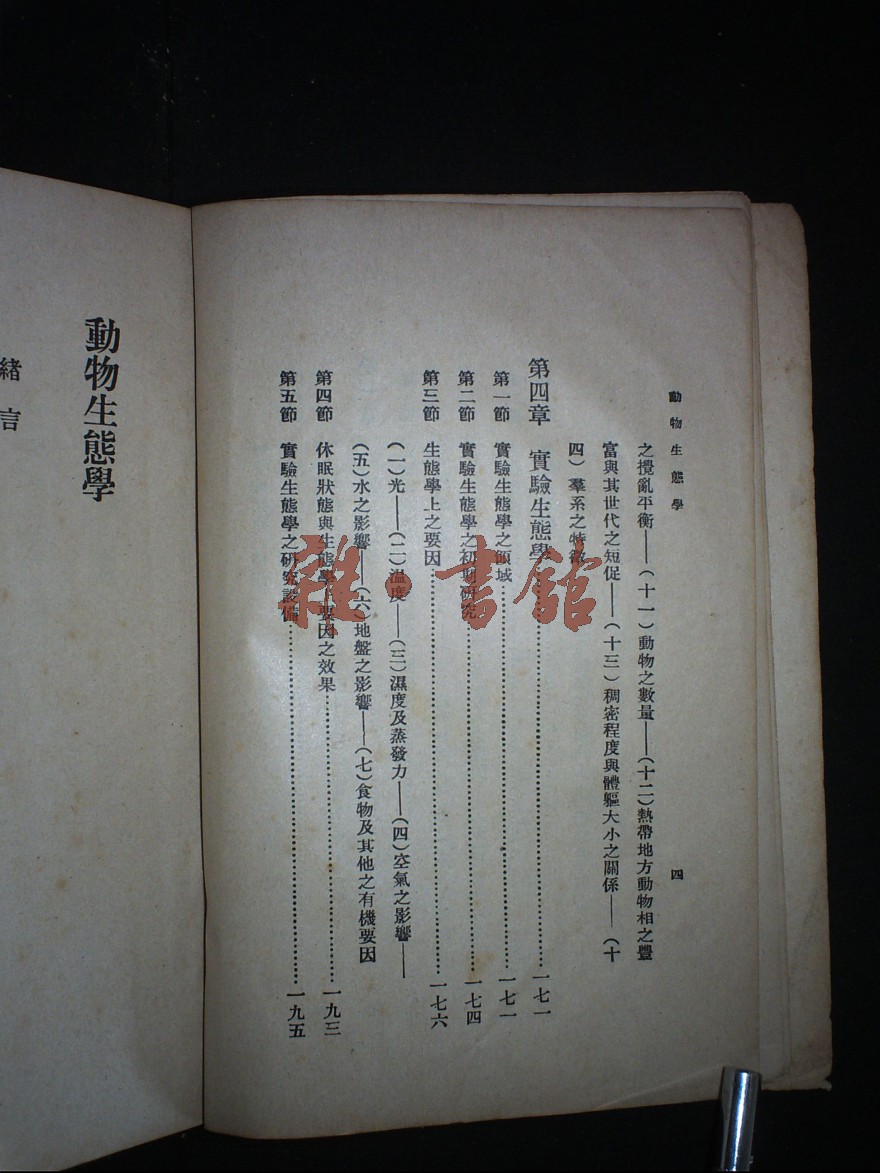 動物生態學
四
之攪亂平衡——(十一)動物之數量——(十二)熱帶地方動物相之豐
富與其世代之短促——(十三)稠密程度與體軀大小之關係——(十
四)羣系之特徵
第四章 實驗生態學……一七一
第一節 實驗生態學之領域……一七一
第二節 實驗生態學之初期研究……一七四
第三節 生態學上之要因……一七六
(一)光——(二)溫度——(三)濕度及蒸發力——(四)空氣之影響——
(五)水之影響——(六)地盤之影響——(七)食物及其他之有機要因
第四節 休眠狀態與生態學要因之效果……一九三
第五節 實驗生態學之研究設備……一九五
動物生態學
緒言
雜·書館